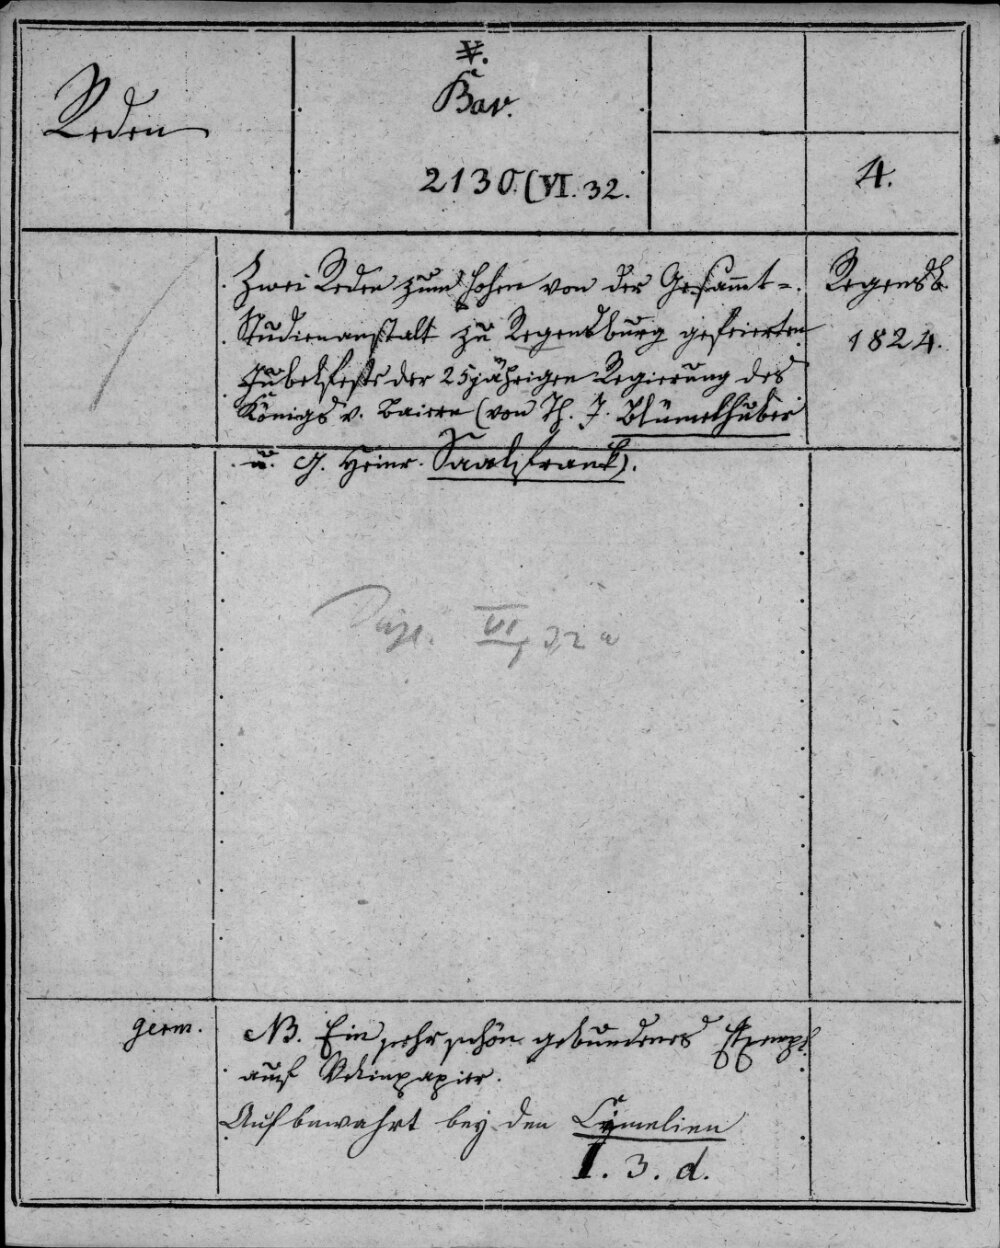 Reden
V.
Bav.
2130.(VI. 32.
4.
Zwei Reden zum hohen von der Gesammt-
Studienanstalt zu Regensburg gefeierten
Jubelfeste der 25jährigen Regierung des
Königs v. Baiern (von Th. J. Blümelhuber
u. G. Heinr. Saalfrank).
Regensb.
1824.
VI, 32 a
germ.
NB. Ein sehr schön gebundenes Exempl.
auf Velinpapier.
Aufbewahrt bey den Cymelien
I. 3. d.